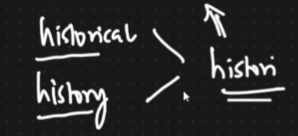 historical
histori
history